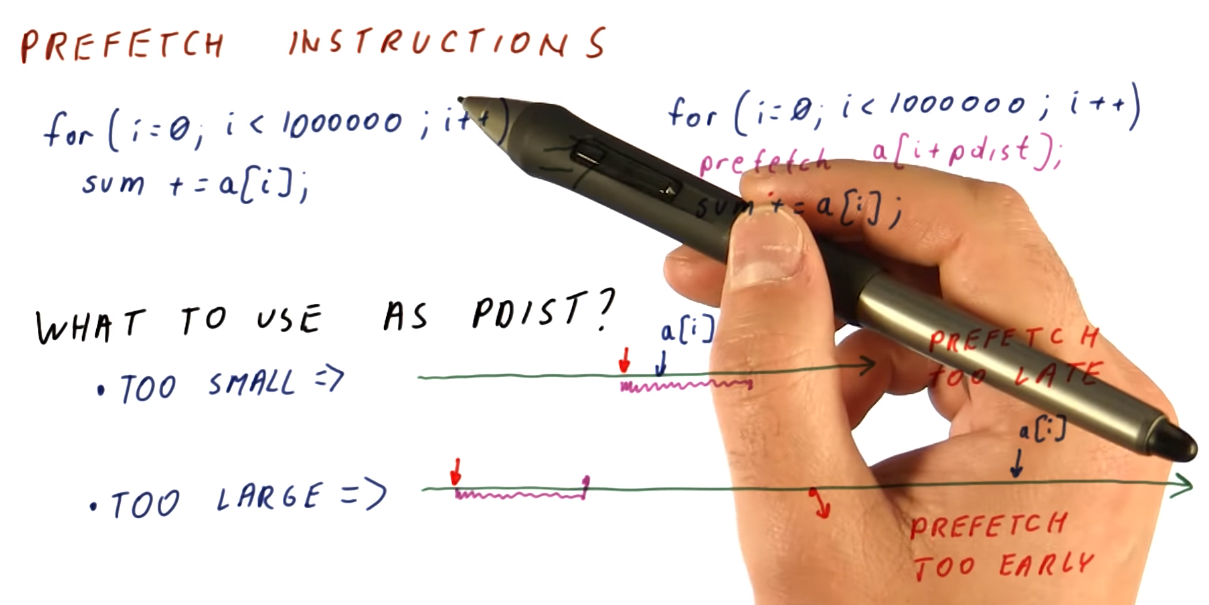 PREFETCH INSTRUCTIONS
for (i=0; i < 1000000 ; i++)
sum += a[i];
for (i=0; i < 1000000 ; i++)
prefetch a[i+pdist];
sum += a[i];
WHAT TO USE AS PDIST?
• TOO SMALL =>
a[i]
PREFETCH
TOO LATE
• TOO LARGE =>
a[i]
PREFETCH
TOO EARLY